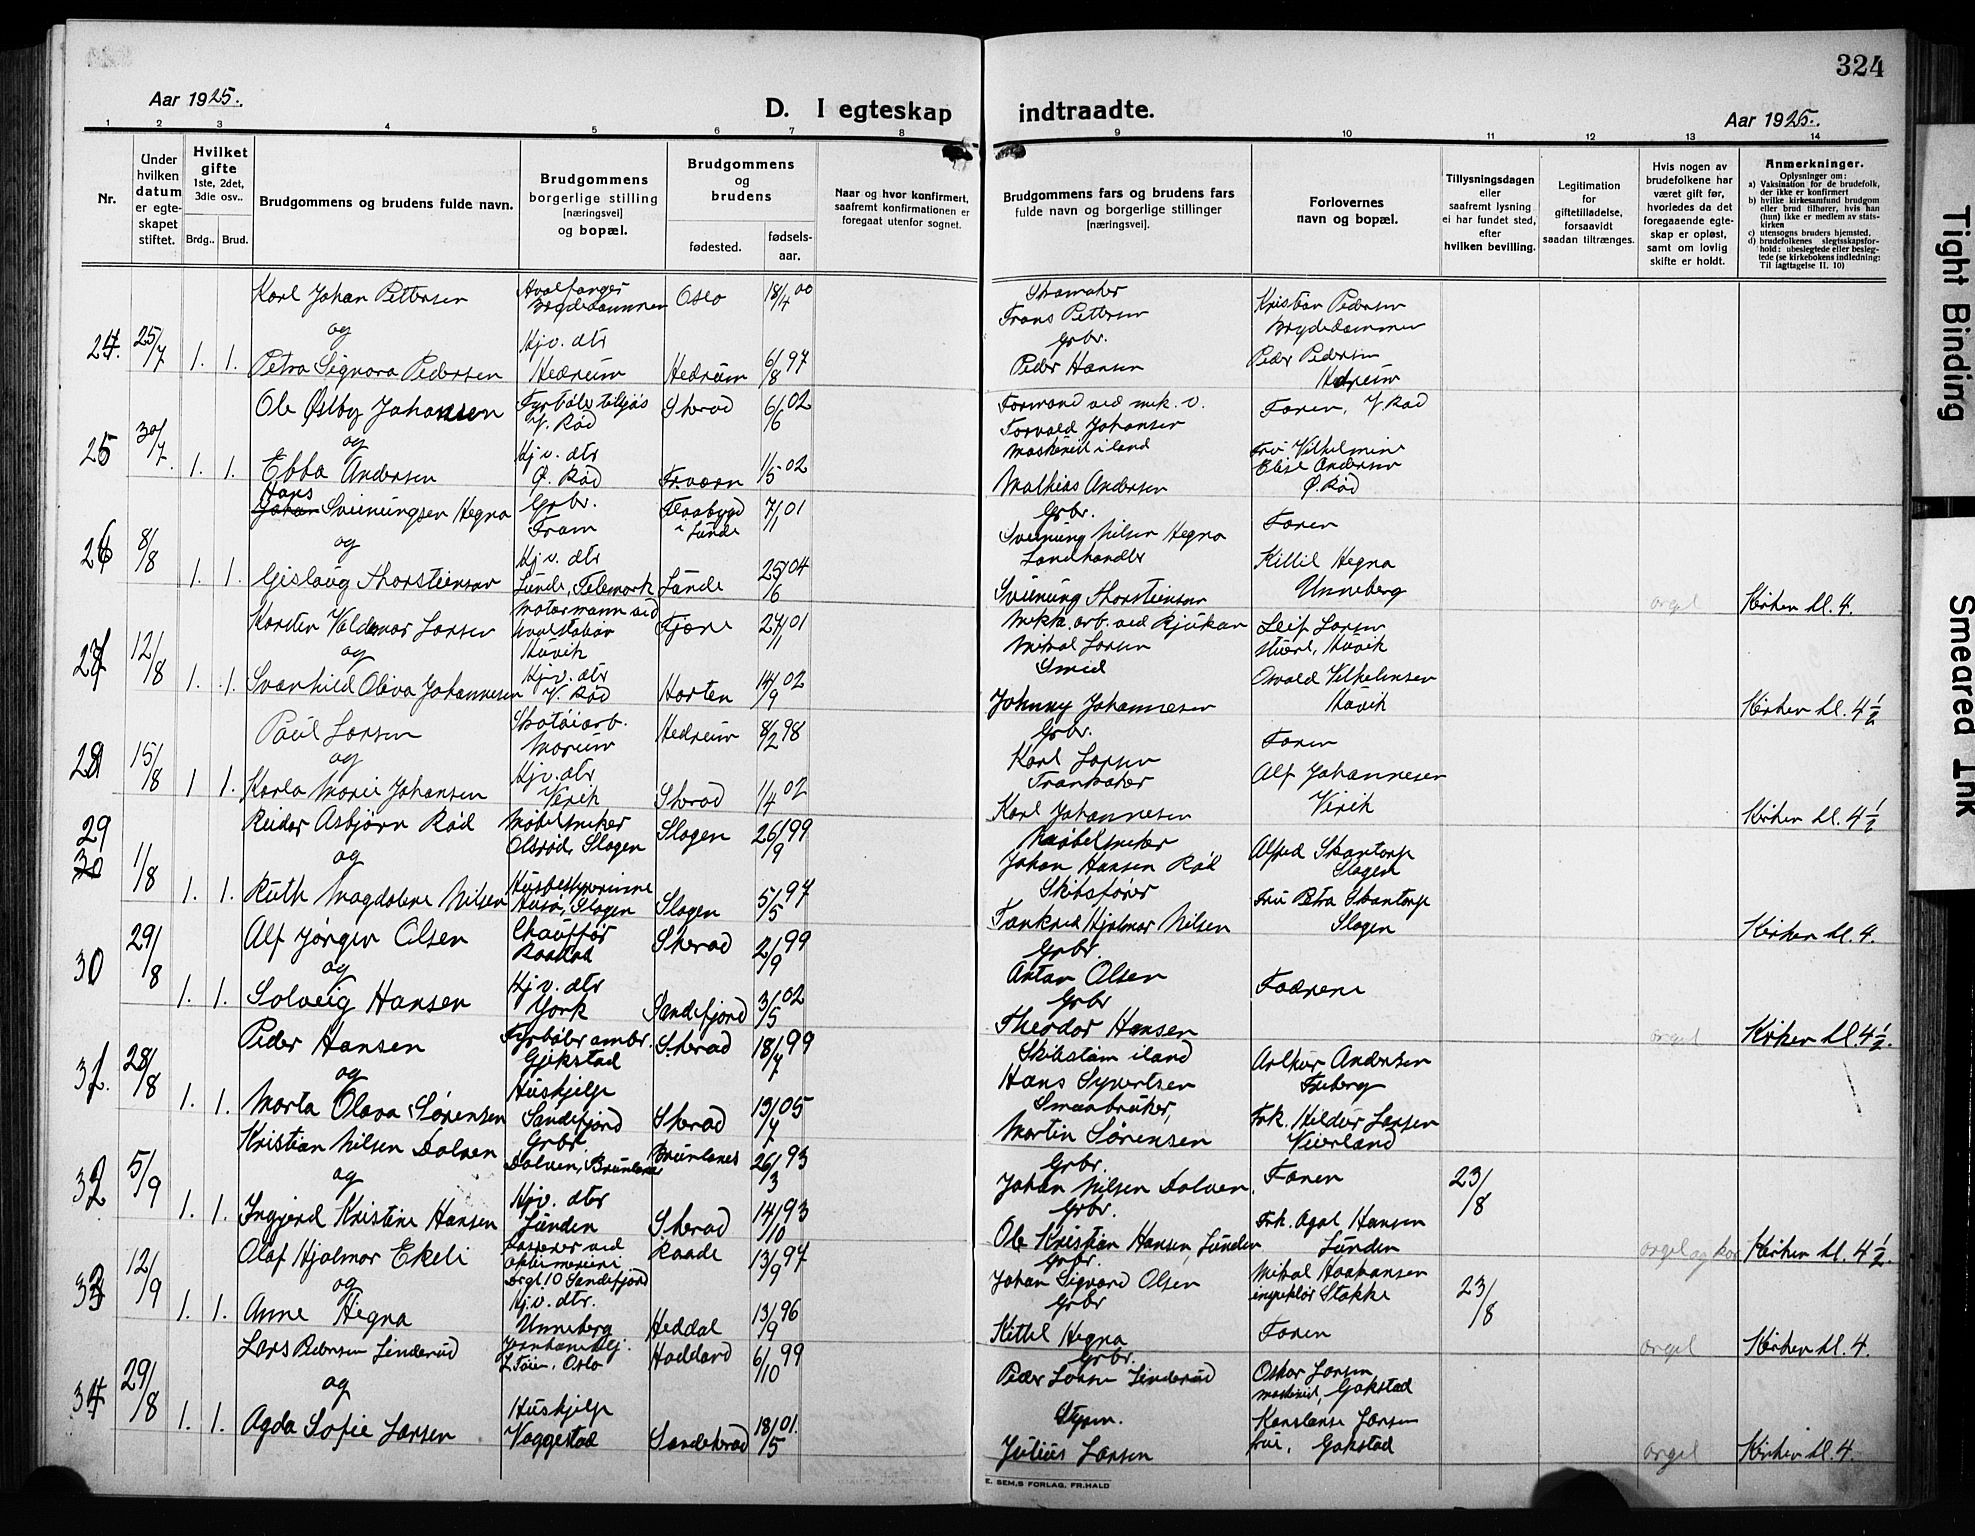 324
Aar 1925.
D. I egteskap indtraadte.
Aar 1925.
1 2 3 4 5 6 7 8 9 10 11 12 13 14
Nr.
Under hvilken datum er egte-skapet stiftet.
Hvilket gifte
1ste, 2det, 3die osv..
Brdg.. Brud.
Brudgommens og brudens fulde navn.
Brudgommens borgerlige stilling [næringsvei] og bopæl.
Brudgommens og brudens
fødested.
fødsels-aar.
Naar og hvor konfirmert, saafremt konfirmationen er foregaat utenfor sognet.
Brudgommens fars og brudens fars fulde navn og borgerlige stillinger [næringsvei].
Forlovernes navn og bopæl.
Tillysningsdagen eller saafremt lysning ei har fundet sted, efter hvilken bevilling.
Legitimation for giftetilladelse, forsaavidt saadan tiltrænges.
Hvis nogen av brudefolkene har været gift før, hvorledes da det foregaaende egte-skap er opløst, samt om lovlig skifte er holdt.
Anmerkninger.
Oplysninger om:
a) Vaksination for de brudefolk, der ikke er konfirmert
b) hvilke kirkesamfund brudgom eller brud tilhører, hvis han (hun) ikke er medlem av stats-kirken
c) utensogns bruders hjemsted.
d) brudefolkenes slegtsskapsfor-hold: ubeslegtede eller besleg-tede (se kirkebokens indledning: Til iagttagelse II. 10)
24. 25/7 1. 1.
Karl Johan Pettersen Hvalfanger Bygdedammen Oslo 18/4 00
Frans Pettersen
Kristian Pedersen Bygdedammen
og
Petra Signora Pedersen Hjv. dtr Hedrum Hedrum 6/8 97
Grbr. Peder Hansen
Peder Pedersen Hedrum
25 30/7. 1. 1.
Ole Østby Johansen V. Rød Sherad 6/6 02
Formand ved mek. v. Torvald Johansen
Faren, V. Rød
og
Ebba Andersen Hjv. dtr Ø. Rød 1/5 02
Maskinist iland Mathias Andersen
Fru Vilhelmine Elise Andersen Ø. Rød
26 8/8 1. 1.
Hans Johan Sveinungsen Hegna Grbr. Fram Flaabygd i Lunde 7/1 01
Grbr. Sveinung Nilsen Hegna
Faren
og
Gislaug Thorsteinsen Hjv. dtr Lunde, Telemark Lunde 25/6 04
Landhandler Sveinung Thorsteinsen
Kittil Hegna Unneberg
orgel Kirken kl. 4.
27 12/8 1. 1.
Karsten Valdemar Larsen Motormann ved Hvalstation Huvik Fjære 27/1 01
Mekk. arb. ved Rjukan Mikal Larsen
Leif Larsen Huvik
og
Svanhild Oliva Johannesen Hjv. dtr V. Rød Horten 14/9 02
Smid Johnny Johannesen
Osvald Vilhelmsen Huvik
Kirken kl. 4 1/2
28 15/8 1 1.
Paul Larsen Skotøiarb. Morum Hedrum 8/2 98
Grbr. Karl Larsen
Faren
og
Karla Marie Johansen Hjv. dtr Virik Sherad 1/4 02
Trankoker Karl Johannesen
Alf Johannesen Virik
Kirken kl. 4 1/2
29 30 1/8 1. 1.
Reidar Asbjørn Rød Møbelsnikker Olsrød, Slagen Slagen 26/9 99
Møbelsnikker Johan Hansen Rød
Alfred Skantorp Slagen
og
Ruth Magdalene Nilsen Husbestyrerinne Husø, Slagen Slagen 5/5 97
Skibsfører Tankred Hjalmar Nilsen
Fru Petra Skantorp Slagen
Kirken kl. 4.
30 29/8 1. 1.
Alf Jørgen Olsen Chauffør Raastad Sherad 2/9 99
Grbr. Anton Olsen
Fædrene
og
Solveig Hansen Hjv. dtr York Sandefjord 3/5 02
Grbr Theodor Hansen
orgel Kirken kl. 4 1/2.
31. 28/8 1. 1.
Peder Hansen Fyrbøter ombr. Gjekstad Sherad 18/7 99
Skibstøm. iland Hans Syvertsen
Arthur Andersen Freberg
og
Marta Olava Sørensen Hushjelp Sandefjord Sherad 13/7 05
Smaabruker, Martin Sørensen
Frk. Hildur Larsen Veierland
32 5/9 1. 1.
Kristian Nilsen Dolven Grbr. Dolven, Brunlanes Brunlanes 26/3 93
Grbr. Johan Nilsen Dolven
Faren 23/8
og
Ingjerd Kristine Hansen Hjv. dtr Lunden Sherad 14/10 93
Grbr. Ole Kristian Hansen, Lunden
Frk. Agot Hansen Lunden
orgel og kor Kirken kl. 4 1/2.
33 12/9 1. 1.
Olaf Hjalmar Ekeli Kasserer ved Sandefjord Raade 13/9 97
Grbr. Johan Sigvard Olsen
Mikal Haakansen Stokke 23/8
og
Anne Hegna Hjv. dtr. Unneberg Heddal 13/9 96
Grbr Kittil Hegna
Faren
orgel Kirken kl. 4.
34 29/8 1. 1.
Lars Pedersen Linderud Oslo 6/10 99
Grbr. Peder Larsen Linderud
Oskar Larsen maskinist, Gokstad
og
Agda Sofie Larsen Hushjelp Vaggestad Sandeherad 18/5 01.
Stym. Julius Larsen
Konstanse Larsen frue, Gokstad
orgel Kirken kl. 4.
E. SEM.S FORLAG, FR.HALD
Tight Binding
Smeared Ink